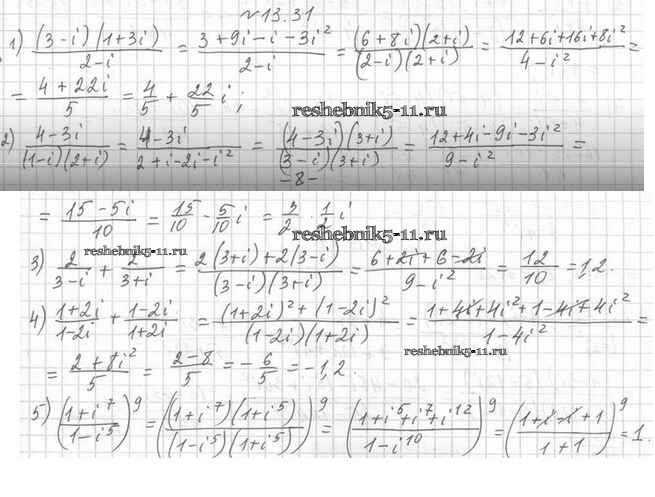 №13.31
1) (3-i)(1+3i)/(2-i) = (3+9i-i-3i²)/(2-i) = (6+8i)(2+i)/((2-i)(2+i)) = (12+6i+16i+8i²)/(4-i²) =
= (4+22i)/5 = 4/5 + 22/5 i;
reshebnik5-11.ru
2) (4-3i)/((1-i)(2+i)) = (4-3i)/(2+i-2i-i²) = (4-3i)(3+i)/((3-i)(3+i)) = (12+4i-9i-3i²)/(9-i²) =
-8-
= (15-5i)/10 = 15/10 - 5/10 i = 3/2 · 1/2 i
reshebnik5-11.ru
reshebnik5-11.ru
3) 2/(3-i) + 2/(3+i) = (2(3+i)+2(3-i))/((3-i)(3+i)) = (6+2i+6-2i)/(9-i²) = 12/10 = 1,2.
4) (1+2i)/(1-2i) + (1-2i)/(1+2i) = ((1+2i)²+(1-2i)²)/((1-2i)(1+2i)) = (1+4i+4i²+1-4i+4i²)/(1-4i²) =
reshebnik5-11.ru
= (2+8i²)/5 = (2-8)/5 = -6/5 = -1,2.
5) ((1+i⁷)/(1-i⁵))⁹ = ((1+i⁷)(1+i⁵)/((1-i⁵)(1+i⁵)))⁹ = ((1+i⁵+i⁷+i¹²)/(1-i¹⁰))⁹ = ((1+i-i+1)/(1+1))⁹ = 1.